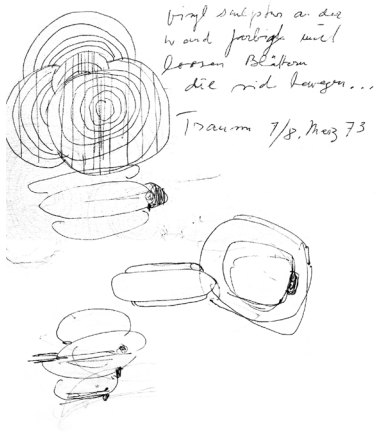 vinyl sculptur an der
wand farbig mit
losen Blättern
die sich bewegen...
Traum 7/8. März 73